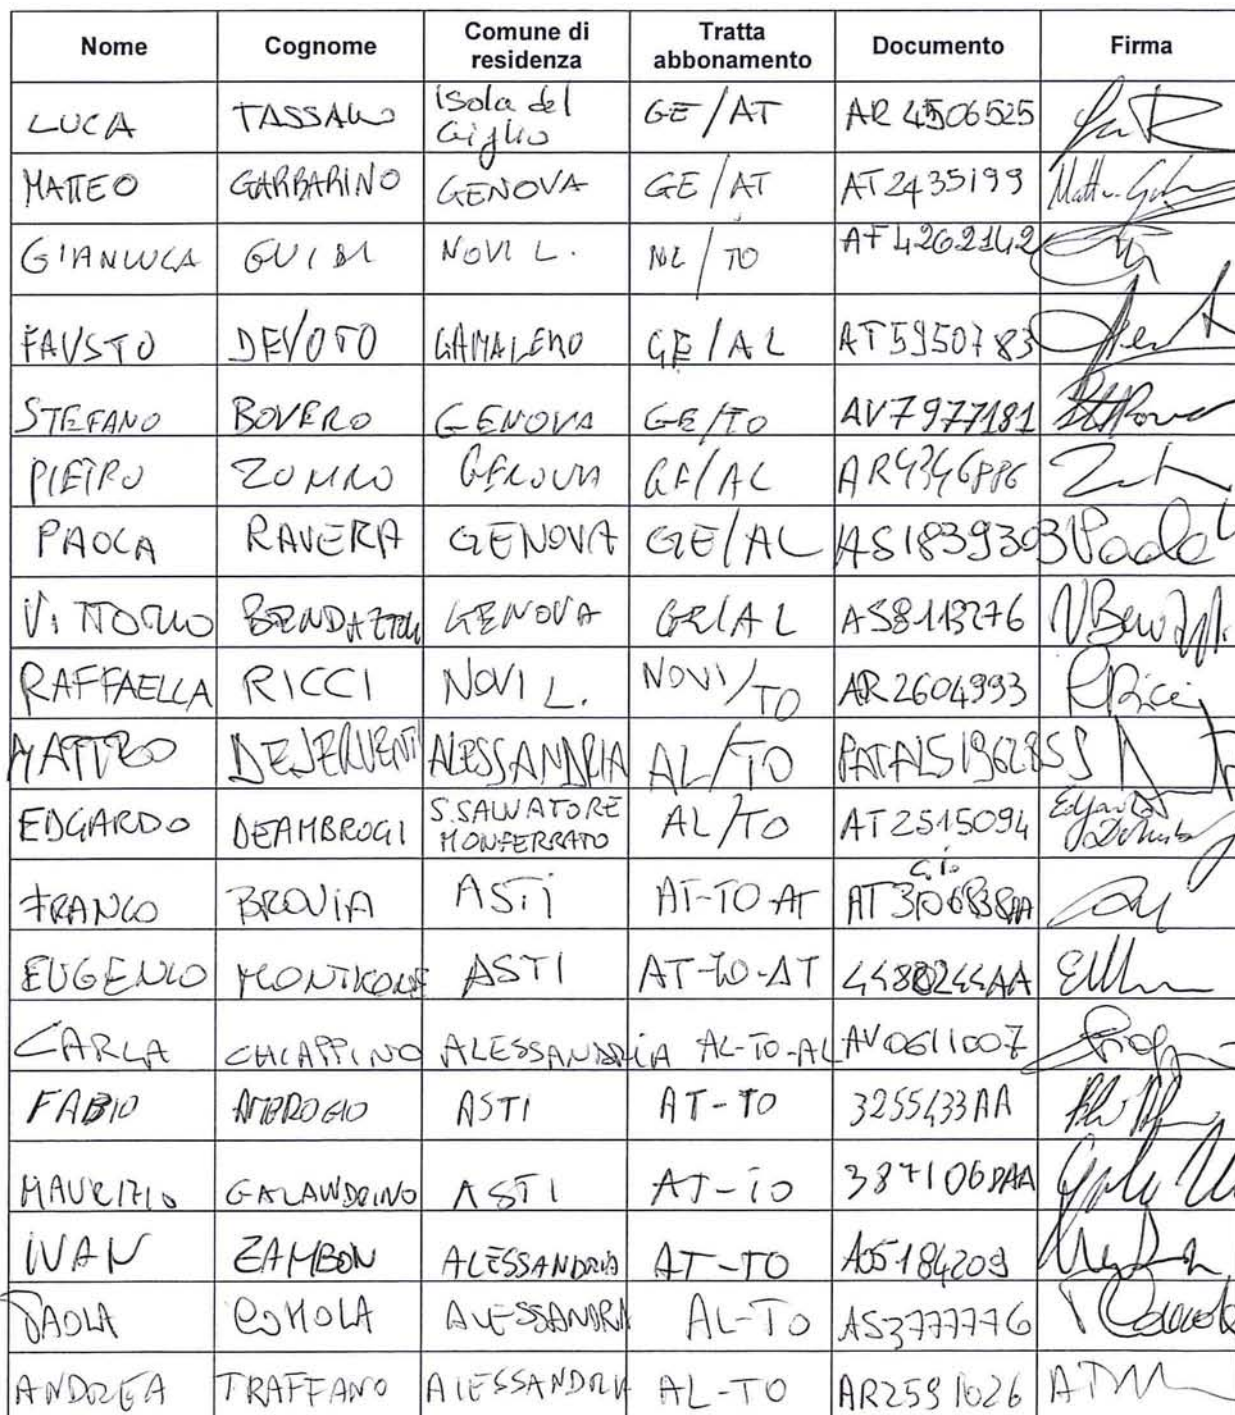 Nome Cognome Comune di residenza Tratta abbonamento Documento Firma
LUCA TASSALO Isola del Giglio GE/AT AR 4506525
MATTEO GARBARINO GENOVA GE/AT AT2435199
GIANLUCA GUIDI NOVI L. NL/TO AT4262142
FAUSTO DEVOTO GAMALERO GE/AL AT5950783
STEFANO BOVERO GENOVA GE/TO AV7977181
PIETRO GENOVA GE/AL
PAOLA RAVERA GENOVA GE/AL AS1839303 Paola
VITTORIO GENOVA GE/AL AS8113276
RAFFAELLA RICCI NOVI L. NOVI/TO AR2604993 RRicci
MATTEO ALESSANDRIA AL/TO
EDGARDO DEAMBROGI S.SALVATORE MONFERRATO AL/TO AT2515094
FRANCO BROVIA ASTI AT-TO-AT
EUGENIO MONTICONE ASTI AT-TO-AT
CARLA CHIAPPINO ALESSANDRIA AL-TO-AL AV0611007
FABIO AMBROGIO ASTI AT-TO 3255433AA
MAURIZIO GALANDRINO ASTI AT-TO
IVAN ZAMBON ALESSANDRIA AT-TO
PAOLA COMOLA ALESSANDRIA AL-TO AS3777776
ANDREA TRAFFANO ALESSANDRIA AL-TO AR2591026